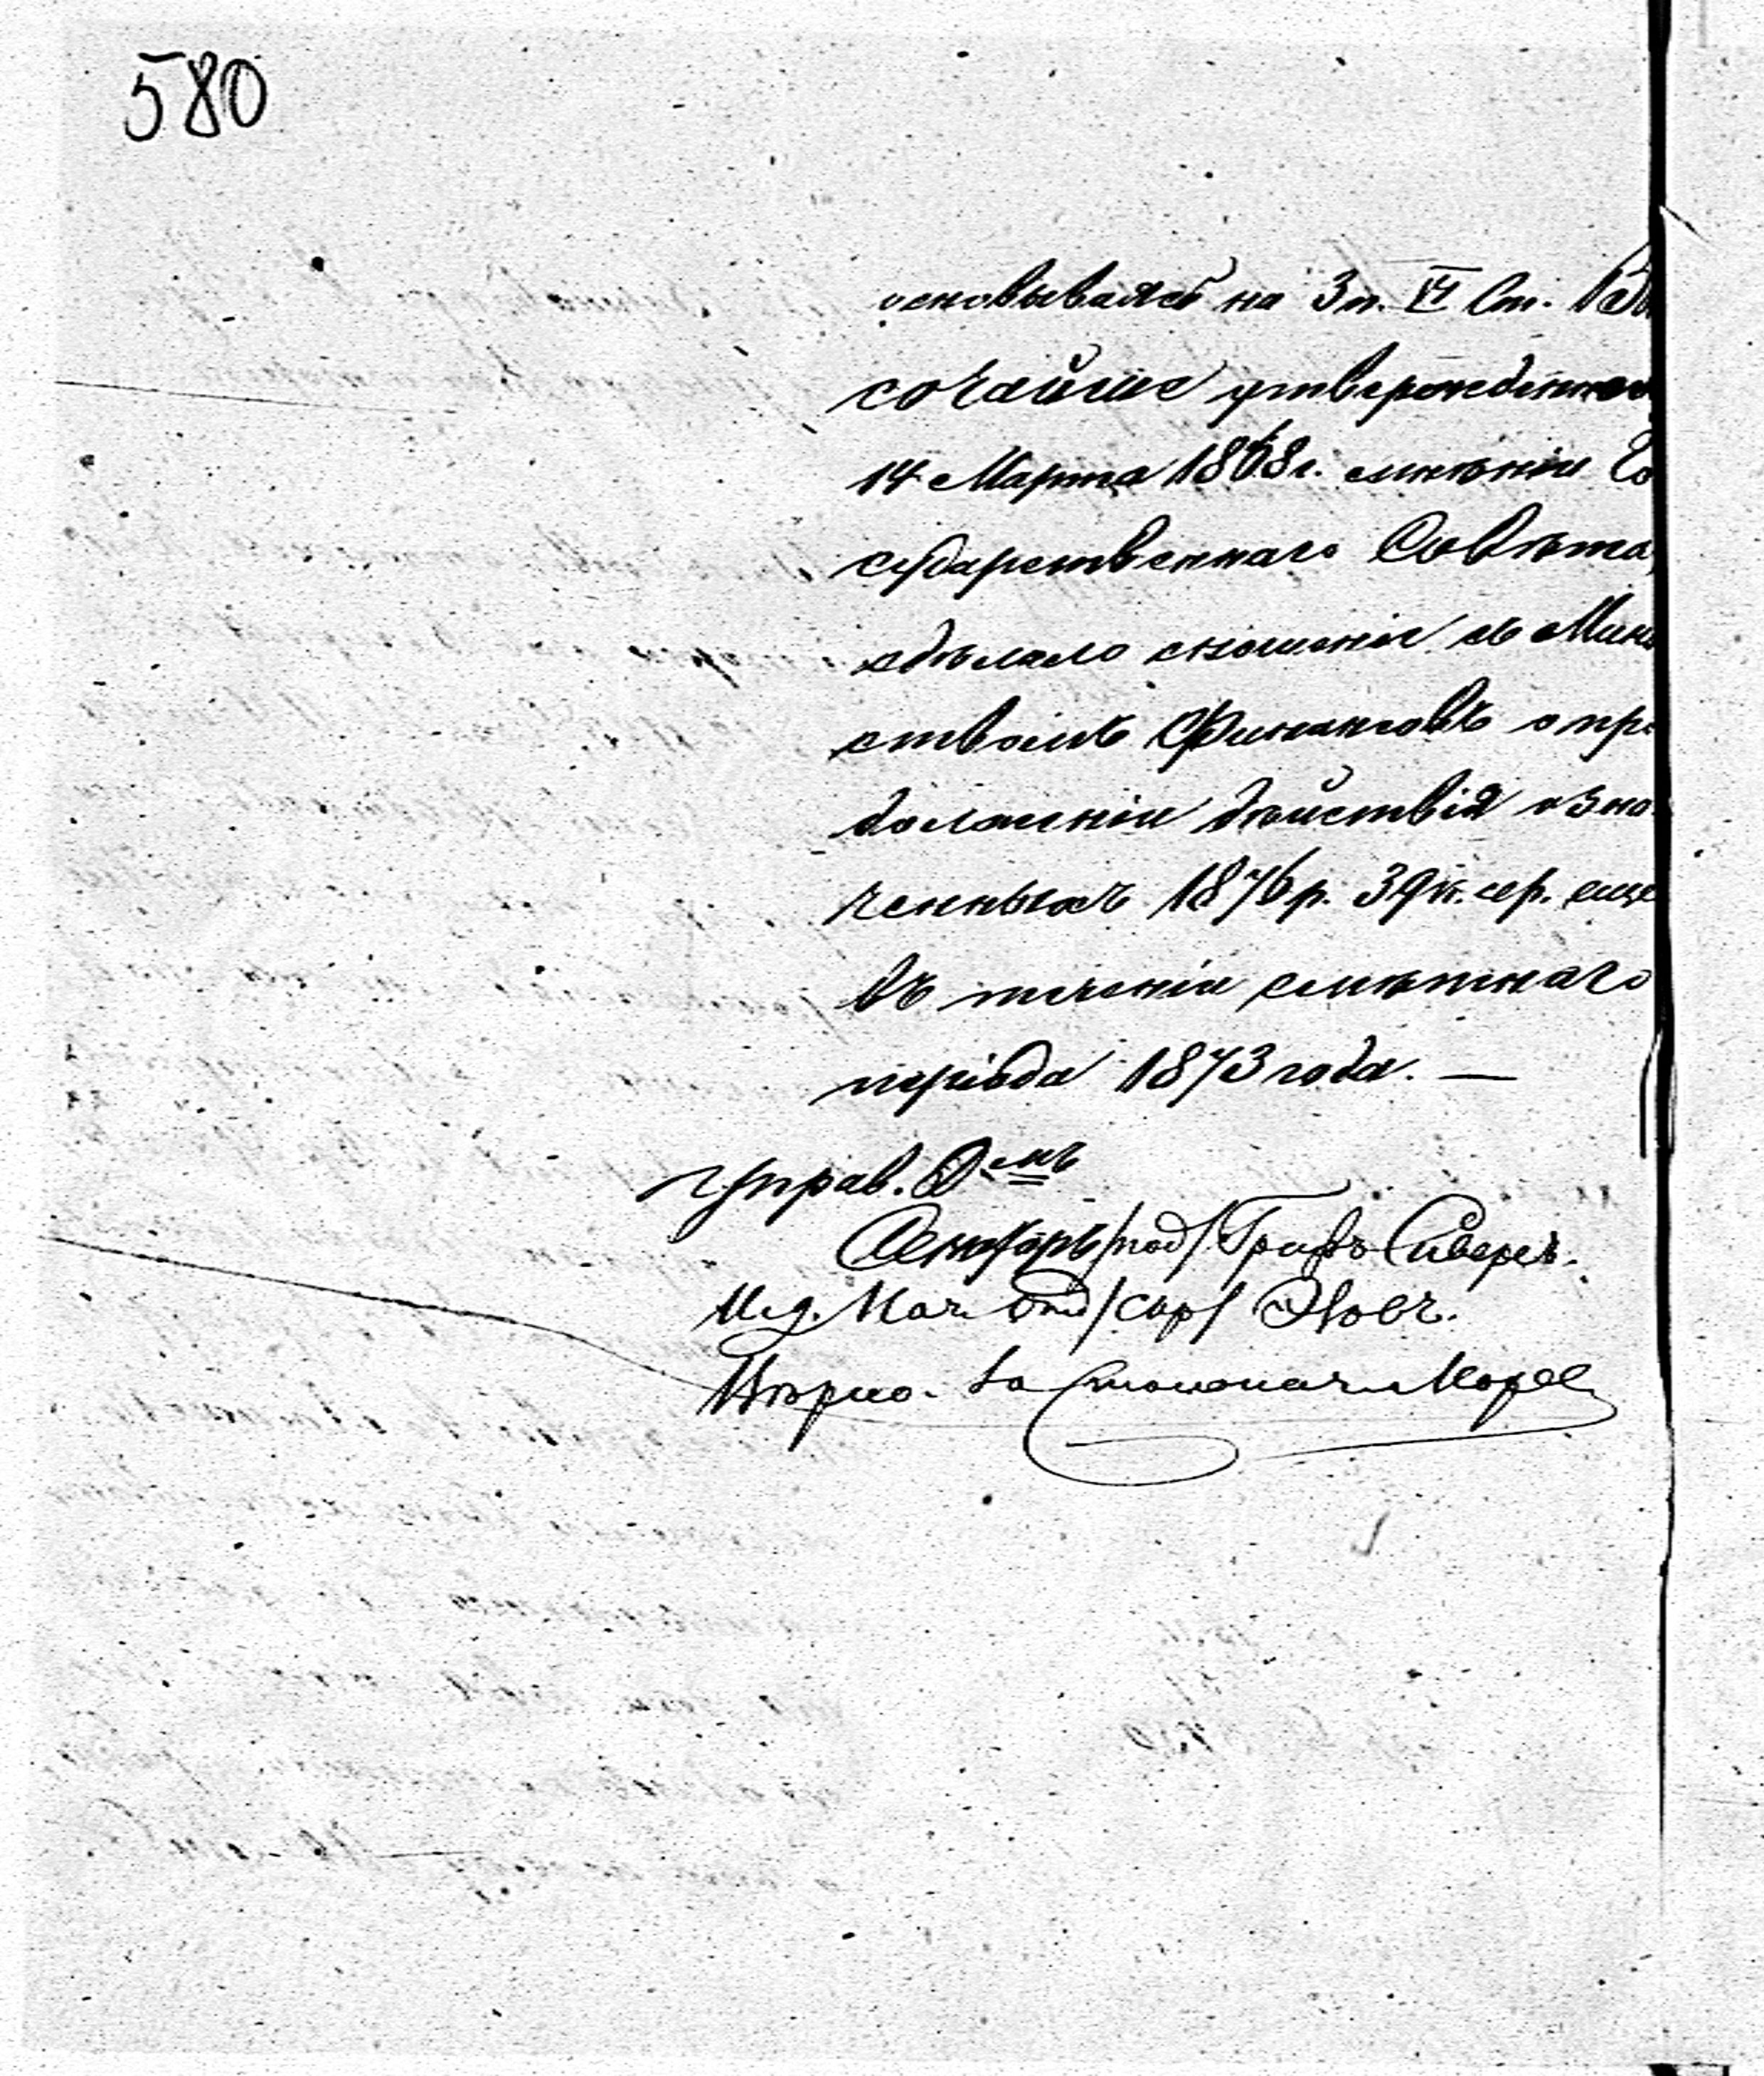 580
основываясь на 3 п. VI Ст. Вы
сочайше утвержденнаго
14 Марта 1868 г. мнѣнiи Го
сударственнаго Совѣта,
сдѣлало сношенiе съ Мини
ствомъ Финансовъ о про
долженiи дѣйствiя озна
ченныхъ 1876 р. 39 к. сер. еще
въ теченiи смѣтнаго
перiода 1873 года. —
Управ. Д-мъ
Сенаторъ /под/ Графъ Сиверсъ.
И. д. Нач. Отд /скр/
Вѣрно. За Столонач.